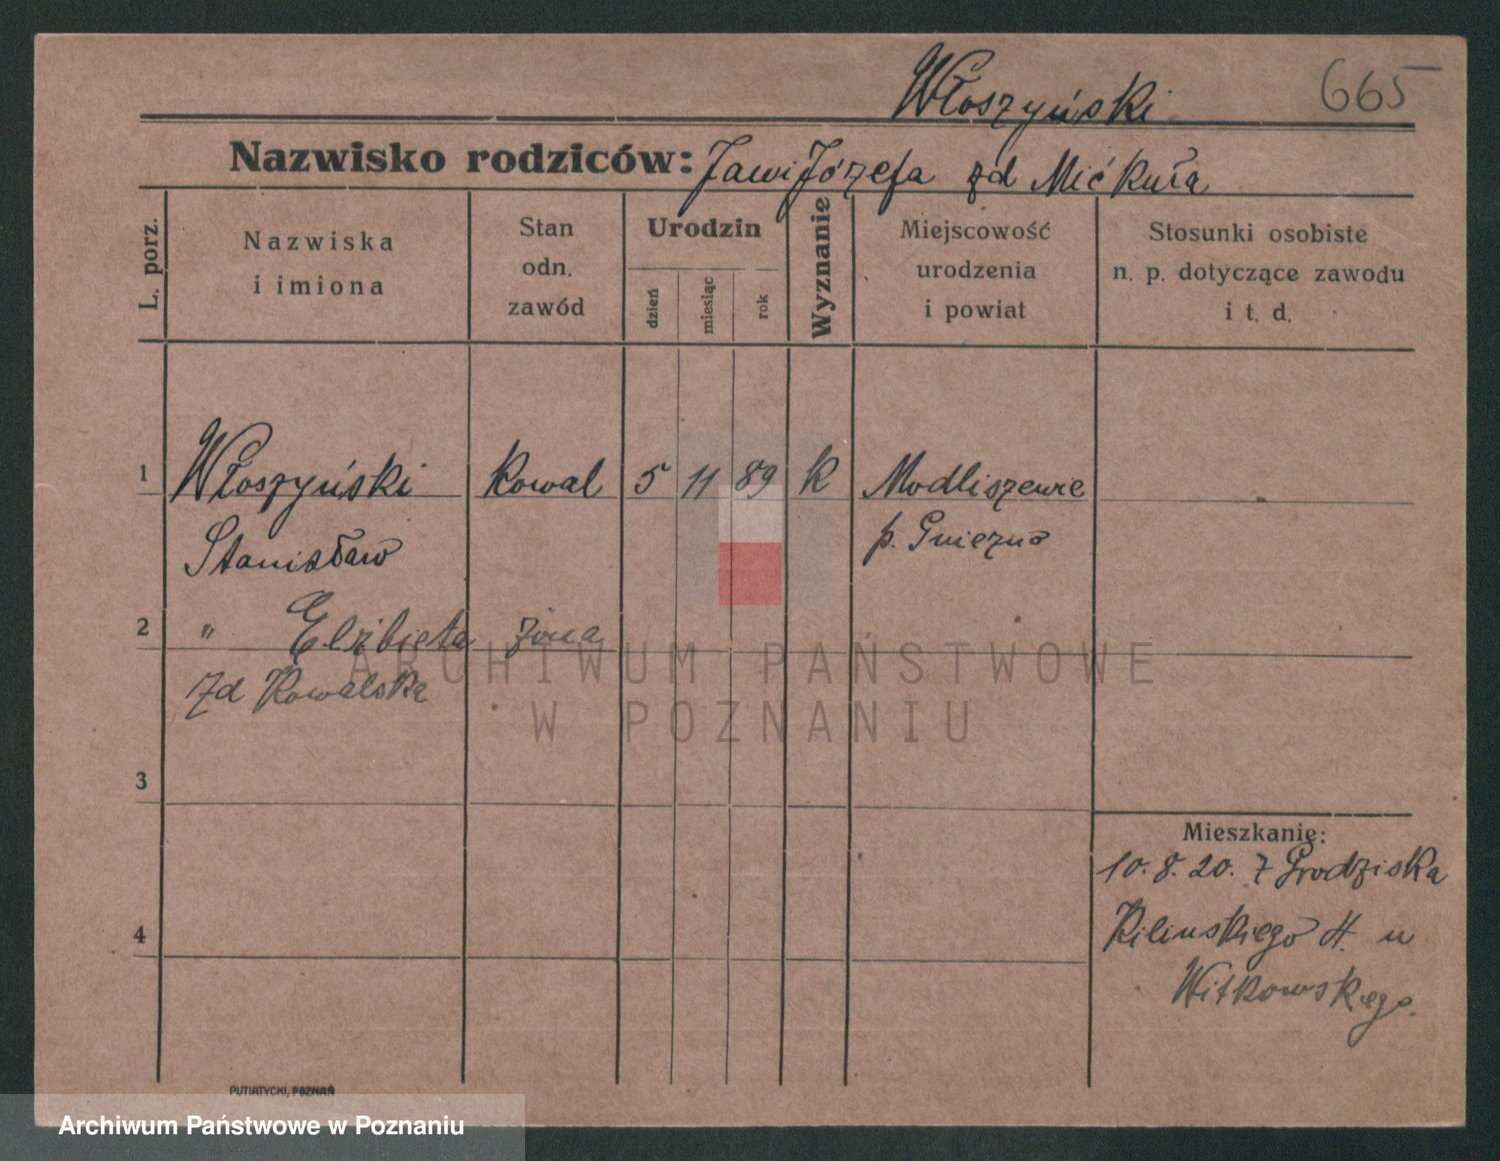 665
Włoszyński
Nazwisko rodziców: Jan i Józefa zd Mićkuła
L. porz.
Nazwiska
i imiona
Stan
odn.
zawód
Urodzin
dzień
miesiąc
rok
Wyznanie
Miejscowość
urodzenia
i powiat
Stosunki osobiste
n. p. dotyczące zawodu
i t. d.
1 Włoszyński kowal 5 11 89 k Modliszewie
Stanisław p. Gniezno
2 " Elżbieta żona
zd Kowalska
3
4
Mieszkanie:
10. 8. 20. z Grodziska
Kilinskiego 4. u
Witkowskego.
PUTIATYCKI, POZNAŃ
ARCHIWUM PAŃSTWOWE
W POZNANIU
Archiwum Państwowe w Poznaniu